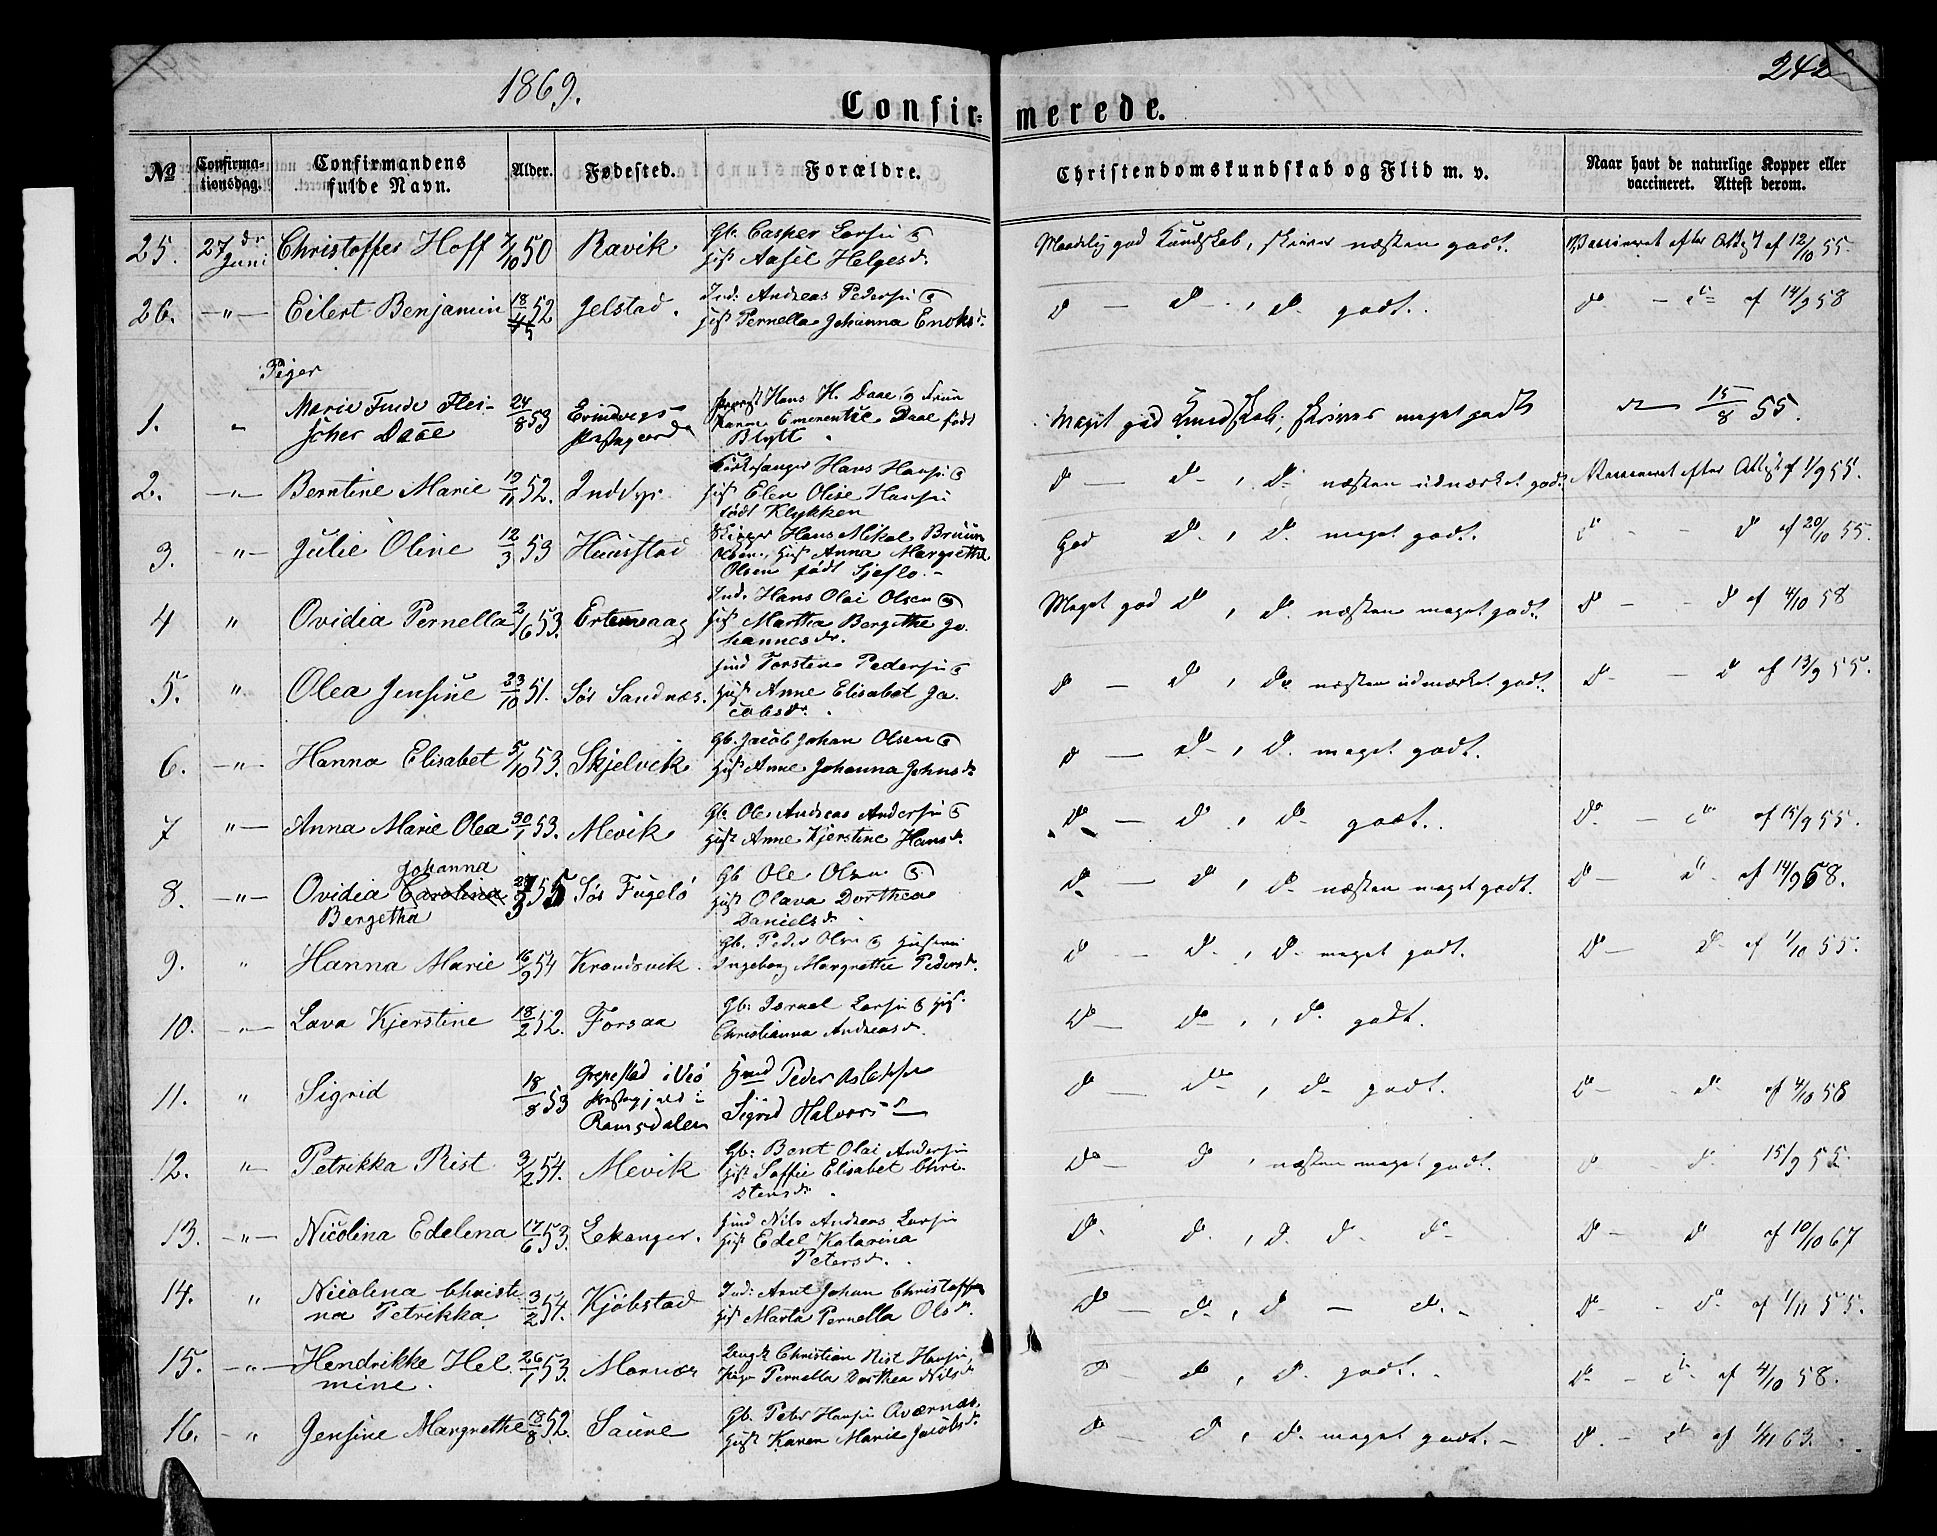 1869.
242
Confirmerede.
№ Confirmationsdag. Confirmandens fulde Navn. Alder. Fødested. Forældre. Christendomskundskab og Flid m. v. Naar havt de naturlige Kopper eller vaccineret. Attest derom.
25. 27de Juni Christoffer Hoff 7/10 50 Ravik Gb. Casper Larsen og Hust Aasel Helgesd. Maadelig god Kundskab, skriver næsten godt. Vaccineret efter Att af 12/10 55.
26. —"— Eilert Benjamin 18/11 52 Jelstad. Ind: Andreas Pedersen og Hust Pernella Johanna Enoksd. Do — Do, Do godt. Do — Do af 14/9 58
Piger
1. " Marie Finde Fleischer Daae 24/8 53 Evindvigs Præstegaard Provst Hans H. Daae og Frue Emerentie Daae født Blytt Meget god Kundskab, skriver meget godt Do 15/8 55.
2. —"— Berntine Marie 19/11 52. Indyr Kirkesanger Hans Hansen og Hust Elen Olise Hansen født Klykken Do — Do, Do næsten udmærket godt. Vaccineret efter Attest af 1/9 55.
3. —"— Julie Oline 12/3 53 Huustad Hans Mikal Bruun Olsen, Hust Anna Margrethe Olsen født God Do, Do meget godt. Do — Do af 20/10 55.
4 " Ovidia Pernella 2/6 53. Ertenvaag Ind: Hans Olai Olsen og Hust Martha Bergitha Johannesd. Meget god Do, Do næsten meget godt. Do — Do af 4/10 58
5. " Olea Jensine 23/10 51. Sør Sandnes. Ind Torsten Pedersen og Hust Anne Elisabet Jacobsd. Do — Do, Do næsten udmærket godt. Do — Do af 13/9 55.
6. —"— Hanna Elisabet 5/10 53. Skjelvik Gb. Jacob Johan Olsen og Hust Anne Johanna Johnsd. Do — Do, Do meget godt.
7 "— Anna Marie Olea 30/1 53. Mevik Gb. Ole Andreas Andersen og Hust Anne Kjerstine Hansd. Do — Do, Do godt. Do — Do af 15/9 55.
8. —"— Ovidia Johanna Carolina Bergetha 55 Sør Fugelø Gb Ole Olsen og Hust Olava Dorthea Danielsd. Do — Do, Do næsten meget godt. Do — Do af 14/9 68.
9. " Hanna Marie 16/9 54 Krandsvik Gb. Peder Olsen og Hustru Ingeborg Margrethe Pedersd. Do — Do, Do meget godt. Do — Do af 1/10 55.
10. —"— Lava Kjerstine 18/2 52. Forsaa Gb. Israel Larsen og Hust. Christianna Andreasd. Do — Do, Do godt.
11. " Sigrid 18/8 53 i Veø Præstegjeld i Romsdalen Ind Peder Aslaksen Sigrid Halvorsd Do — Do, Do godt. Do — Do af 4/10 58
12. "— Petrikka Rist 3/2 54. Mevik Gb: Bent Olai Andersen Hust Soffie Elisabet Christensd. Do — Do, næsten meget godt. Do — Do. 15/9 55.
13. —"— Nicolina Edelena 17/6 53. Lekanger. Ind Nils Andreas Larsen Hust Edel Katarina Petersd. Do. Do, Do Do Do Do — Do af 10/10 67
14. " Nicolina Christina Petrikka. 3/2 54. Kjøbstad Ind: Arnt Johan Christoffersen Hust Marta Pernella Olsd. Do — Do, Do — Do. Do — Do af 1/11 55.
15. —"— Hendrikke Helmine. 26/1 53. Marnes Ungk. Christian Rist Hansen, Pige Pernella Dorthea Nilsd Do — Do, Do godt. Do — Do af 4/10 58.
16. — " Jensine Margrethe 18/8 52. Saure Gb. Peter Hansen Hust Karen Marie Jacobsd. Do — Do, Do meget godt. — Do. — Do af 1/11 63.